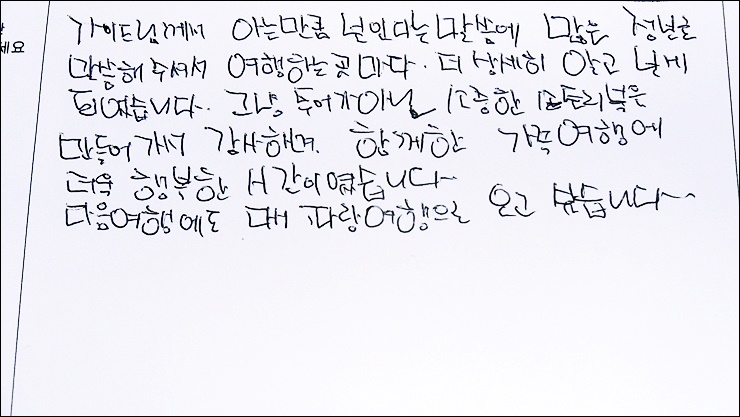 세요
가이드님께서 아는만큼 보인다는 말씀에 많은 정보를
말씀해 주셔서 여행하는 곳마다. 더 상세히 알고 보게
되었습니다. 그냥 투어가 아닌 소중한 스토리북은
만들어가서 감사해며. 함께한 가족여행에
더욱 행복한 시간이였습니다~
다음여행에도 또 파랑여행으로 오고 싶습니다~